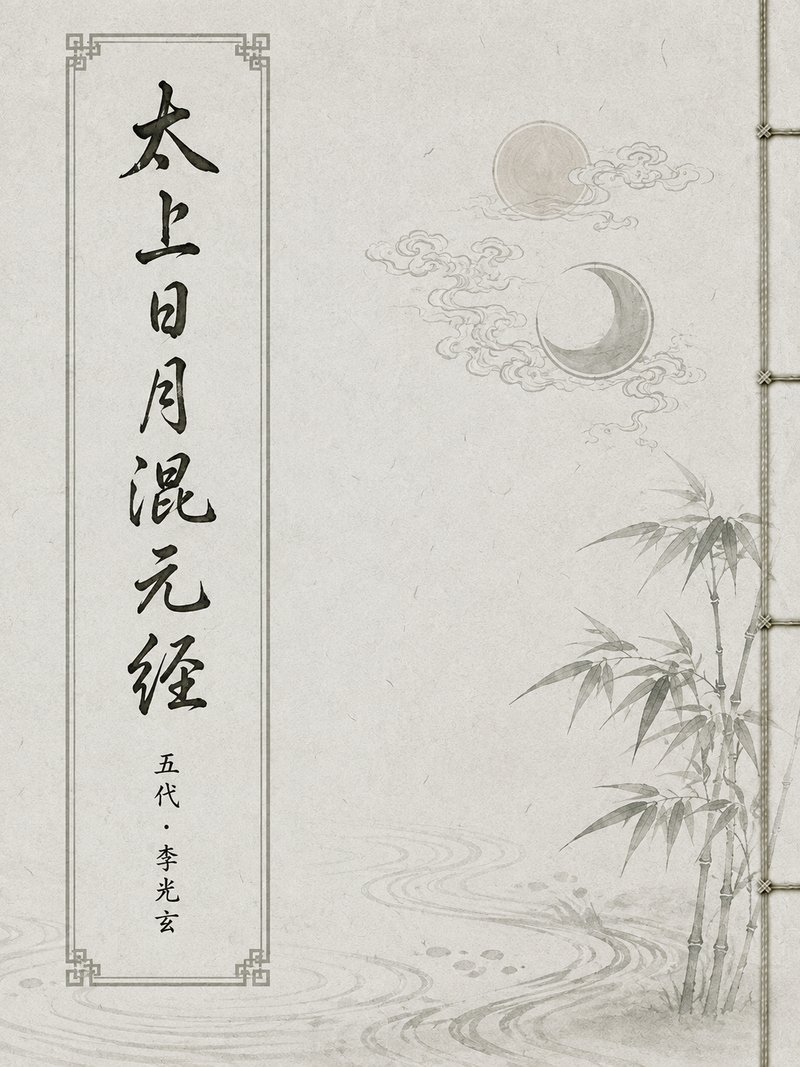 太上日月混元经
五代·李光玄